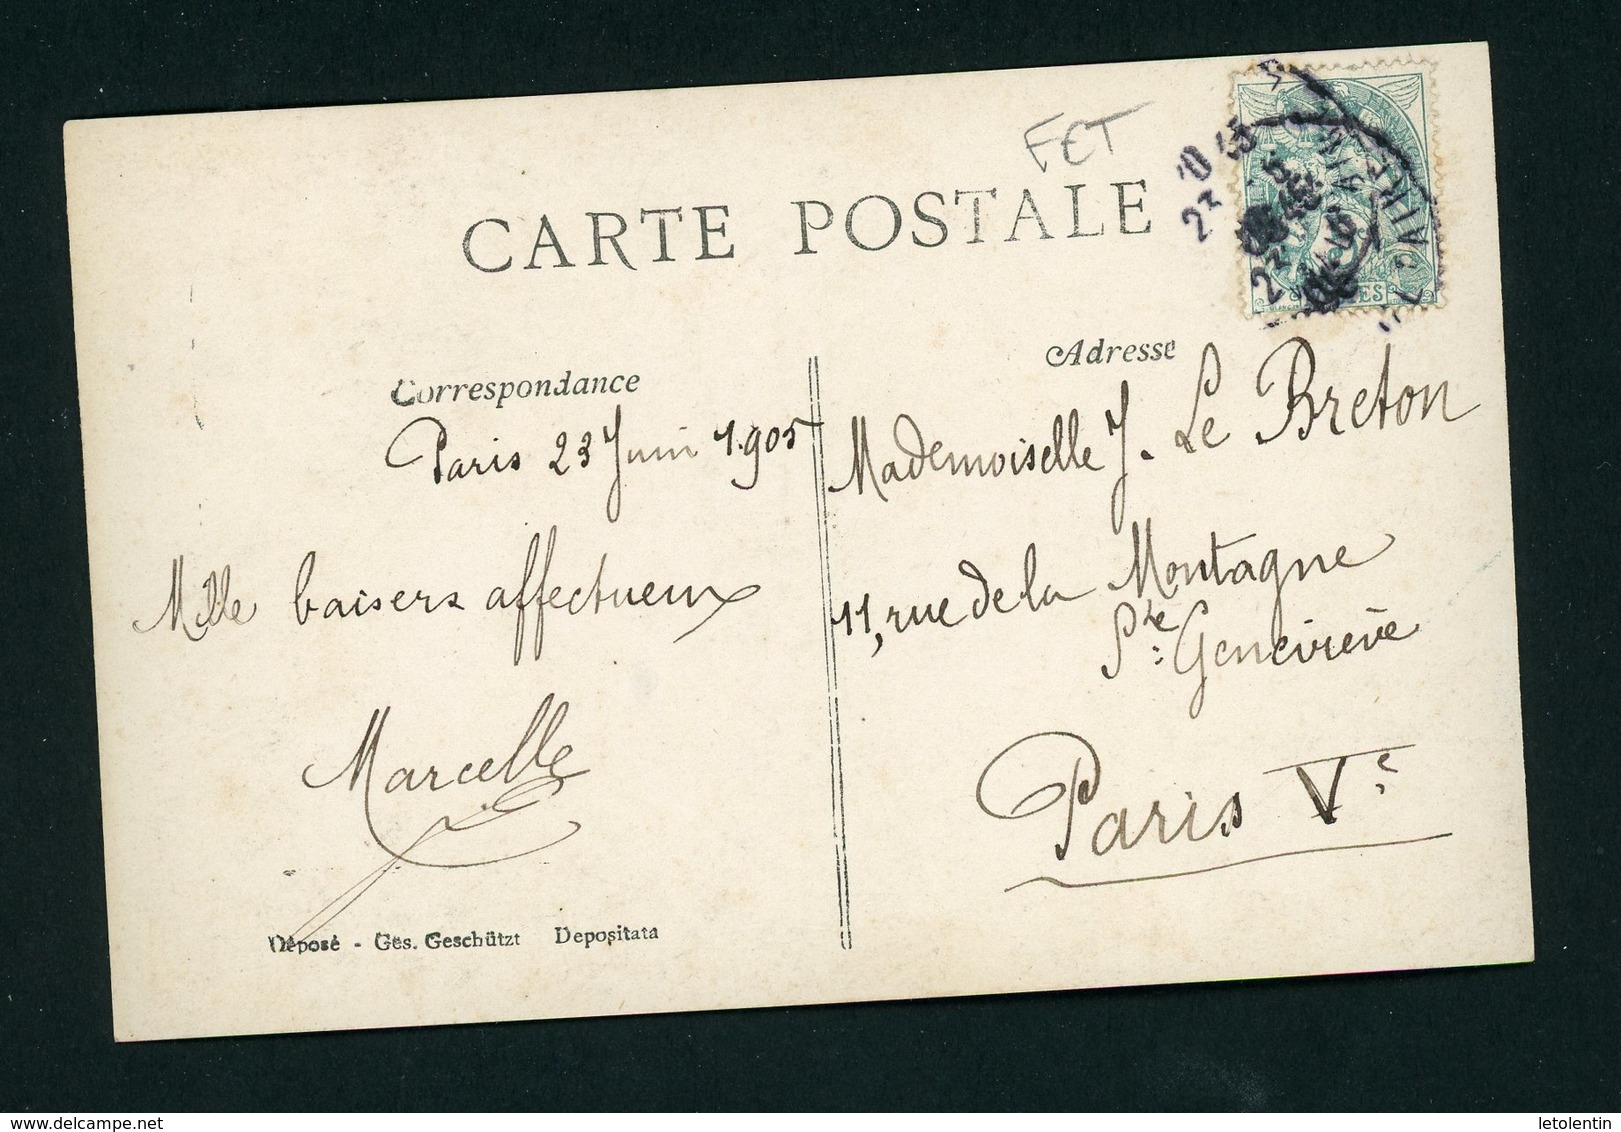 FCT
CARTE POSTALE
Correspondance
Adresse
Paris 23 Juin 1905
Mille baisers affectueux
Marcelle
Mademoiselle J. Le Breton
11, rue de la Montagne
Ste Geneviève
Paris Ve
Déposé - Ges. Geschützt Depositata
www.delcampe.net
letolentin